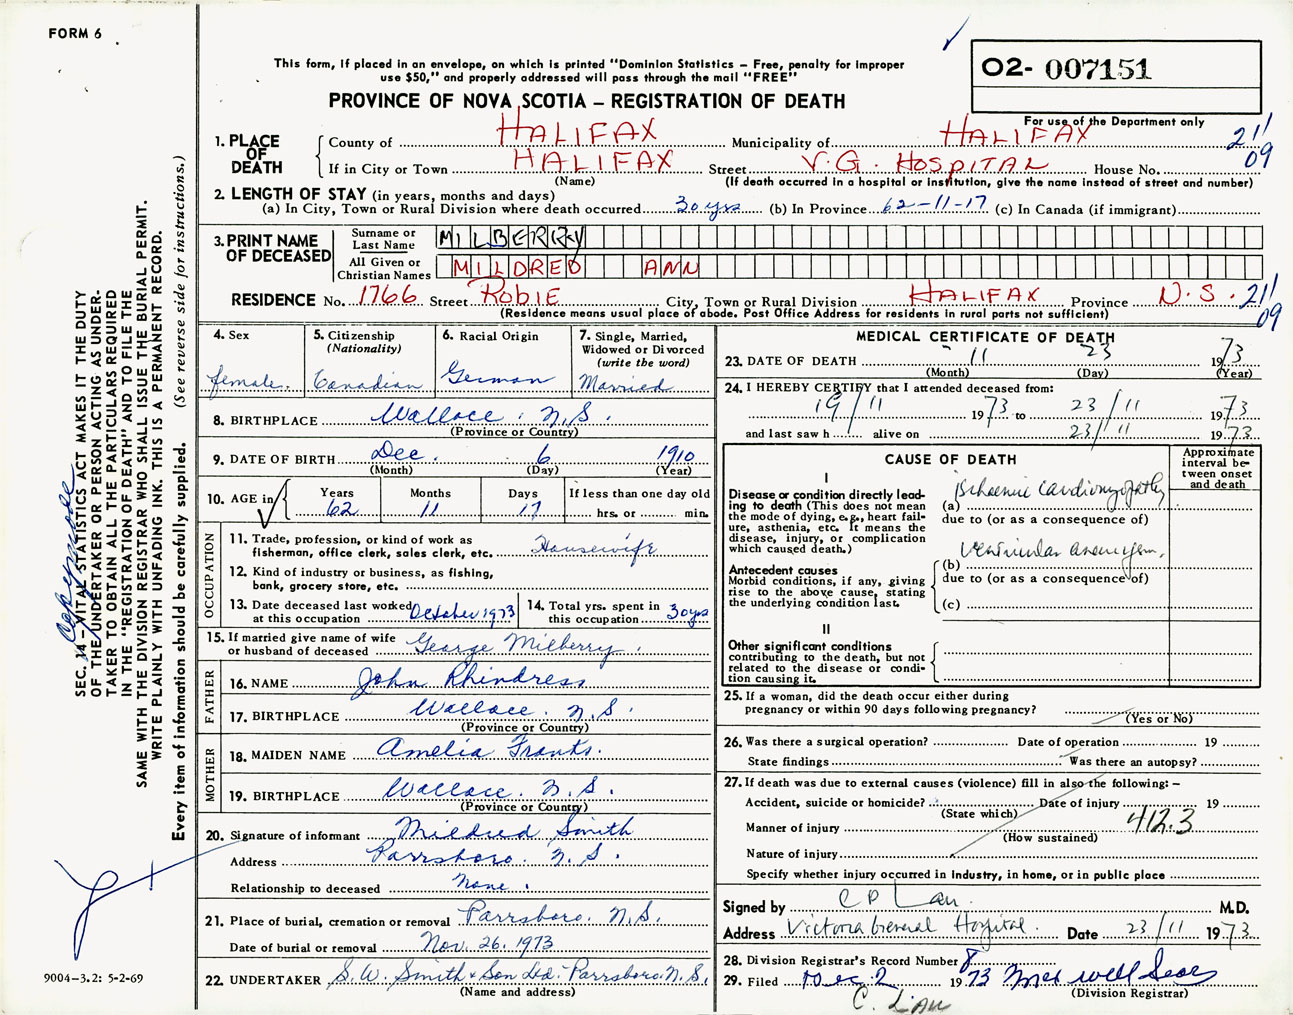 FORM 6
This form, if placed in an envelope, on which is printed "Dominion Statistics – Free, penalty for improper
use $50," and properly addressed will pass through the mail "FREE"
PROVINCE OF NOVA SCOTIA – REGISTRATION OF DEATH
02- 007151
For use of the Department only
1. PLACE OF DEATH
County of HALIFAX Municipality of HALIFAX 211
If in City or Town HALIFAX Street V.G. HOSPITAL House No. 09
(Name) (If death occurred in a hospital or institution, give the name instead of street and number)
2. LENGTH OF STAY (in years, months and days)
(a) In City, Town or Rural Division where death occurred 30 yrs (b) In Province 62-11-17 (c) In Canada (if immigrant)
3. PRINT NAME OF DECEASED
Surname or Last Name MILBERRY
All Given or Christian Names MILDRED ANN
RESIDENCE No. 1766 Street ROBIE City, Town or Rural Division HALIFAX Province N.S. 211
(Residence means usual place of abode. Post Office Address for residents in rural parts not sufficient) 09
4. Sex
female.
5. Citizenship
(Nationality)
Canadian
6. Racial Origin
German
7. Single, Married,
Widowed or Divorced
(write the word)
Married
8. BIRTHPLACE Wallace. N.S.
(Province or Country)
9. DATE OF BIRTH Dec. 6 1910
(Month) (Day) (Year)
10. AGE in
Years 62
Months 11
Days 17
If less than one day old
hrs. or min.
OCCUPATION
11. Trade, profession, or kind of work as
fisherman, office clerk, sales clerk, etc. Housewife
12. Kind of industry or business, as fishing,
bank, grocery store, etc.
13. Date deceased last worked
at this occupation October 1973
14. Total yrs. spent in
this occupation 30 yrs
15. If married give name of wife
or husband of deceased George Milberry.
FATHER
16. NAME John Rhindress
17. BIRTHPLACE Wallace. N.S.
(Province or Country)
MOTHER
18. MAIDEN NAME Amelia Franks.
19. BIRTHPLACE Wallace. N.S.
(Province or Country)
20. Signature of informant Mildred Smith
Address Parrsboro. N.S.
Relationship to deceased None.
21. Place of burial, cremation or removal Parrsboro. N.S.
Date of burial or removal Nov. 26. 1973
22. UNDERTAKER S.W. Smith & Son Ltd. Parrsboro. N.S.
(Name and address)
MEDICAL CERTIFICATE OF DEATH
23. DATE OF DEATH 11 23 1973
(Month) (Day) (Year)
24. I HEREBY CERTIFY that I attended deceased from:
19/11 1973 to 23/11 1973
and last saw h alive on 23/11 1973
CAUSE OF DEATH
Approximate
interval be-
tween onset
and death
I
Disease or condition directly lead-
ing to death (This does not mean
the mode of dying, e.g., heart fail-
ure, asthenia, etc. It means the
disease, injury, or complication
which caused death.)
(a) Ischaemic Cardiomyopathy
due to (or as a consequence of)
Antecedent causes
Morbid conditions, if any, giving
rise to the above cause, stating
the underlying condition last.
(b) Ventricular aneurysm.
due to (or as a consequence of)
(c)
II
Other significant conditions
contributing to the death, but not
related to the disease or condi-
tion causing it.
25. If a woman, did the death occur either during
pregnancy or within 90 days following pregnancy?
(Yes or No)
26. Was there a surgical operation? Date of operation 19
State findings Was there an autopsy?
27. If death was due to external causes (violence) fill in also the following: –
Accident, suicide or homicide? Date of injury 19
(State which)
Manner of injury 412.3
(How sustained)
Nature of injury
Specify whether injury occurred in Industry, in home, or in public place
Signed by C P Lau M.D.
Address Victoria General Hospital. Date 23/11 1973
28. Division Registrar's Record Number 8
29. Filed Dec. 2 1973
(Division Registrar)
C. LAU
SEC. 14 – VITAL STATISTICS ACT MAKES IT THE DUTY
OF THE UNDERTAKER OR PERSON ACTING AS UNDER-
TAKER TO OBTAIN ALL THE PARTICULARS REQUIRED
IN THE "REGISTRATION OF DEATH" AND TO FILE THE
SAME WITH THE DIVISION REGISTRAR WHO SHALL ISSUE THE BURIAL PERMIT.
WRITE PLAINLY WITH UNFADING INK. THIS IS A PERMANENT RECORD.
Every item of information should be carefully supplied. (See reverse side for instructions.)
9004-3.2: 5-2-69